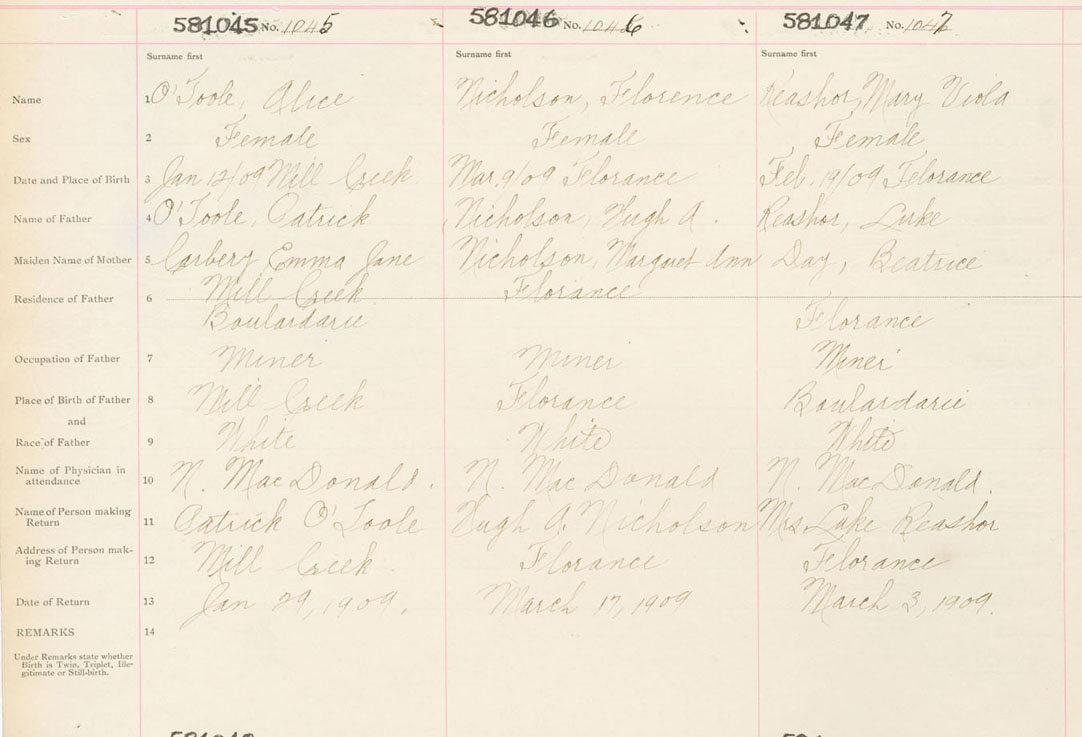 581045 No. 1045 581046 No. 1046 581047 No. 1047
Surname first Surname first Surname first
Name 1 O'Toole, Alice Nicholson, Florence Reashor, Mary Viola
Sex 2 Female Female Female
Date and Place of Birth 3 Jan 12/09 Mill Creek Mar. 9/09 Florance Feb. 19/09 Florance
Name of Father 4 O'Toole, Patrick Nicholson, Hugh A. Reashor, Luke
Maiden Name of Mother 5 Carbery Emma Jane Nicholson, Margaret Ann Day, Beatrice
Residence of Father 6 Mill Creek Florance
Boulardarie Florance
Occupation of Father 7 Miner Miner Miner
Place of Birth of Father 8 Mill Creek Florance Boulardarie
and
Race of Father 9 White White White
Name of Physician in
attendance 10 N. MacDonald. N. MacDonald N. MacDonald.
Name of Person making
Return 11 Patrick O'Toole Hugh A. Nicholson Mrs. Luke Reashor
Address of Person mak-
ing Return 12 Mill Creek. Florance Florance
Date of Return 13 Jan 29, 1909. March 17, 1909 March 3, 1909.
REMARKS 14
Under Remarks state whether
Birth is Twin, Triplet, Ille-
gitimate or Still-birth.